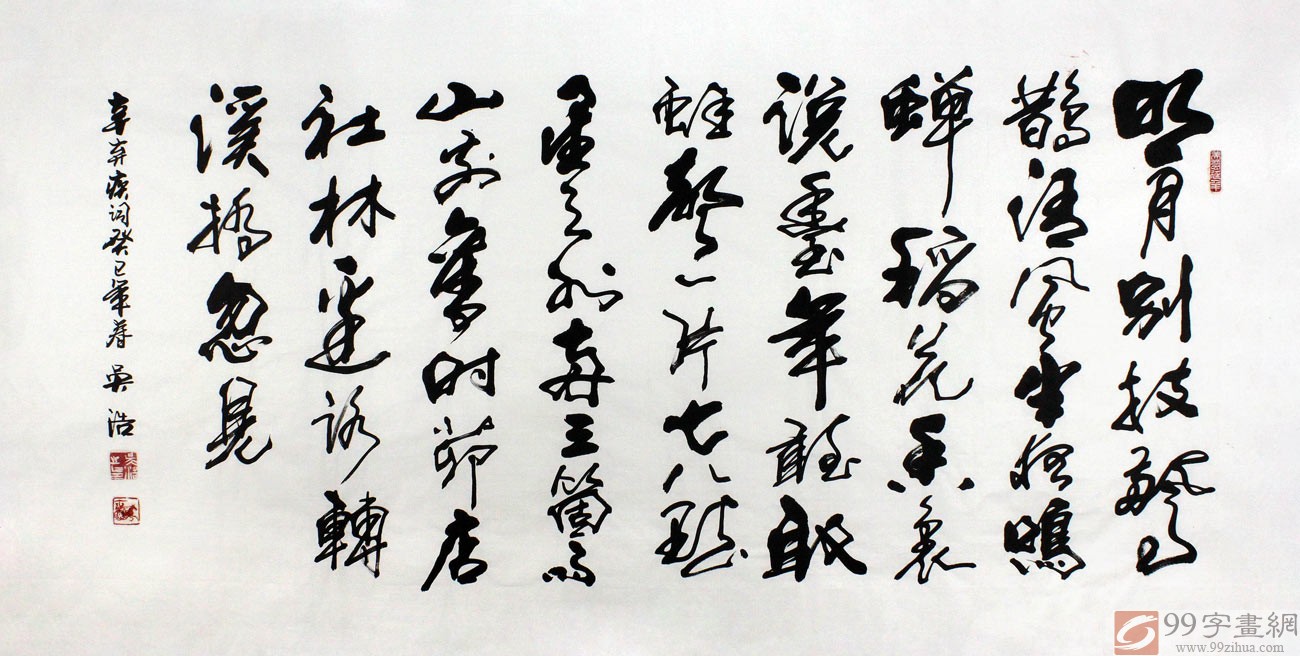 明月别枝驚
鵲清風半夜鳴
蟬稻花香裏
说豐年聽取
蛙聲一片七八點
星天外兩三箇雨
山前舊时茆店
社林邊路轉
溪橋忽見
辛弃疾词癸巳年春 吴浩
99字畫網
www.99zihua.com